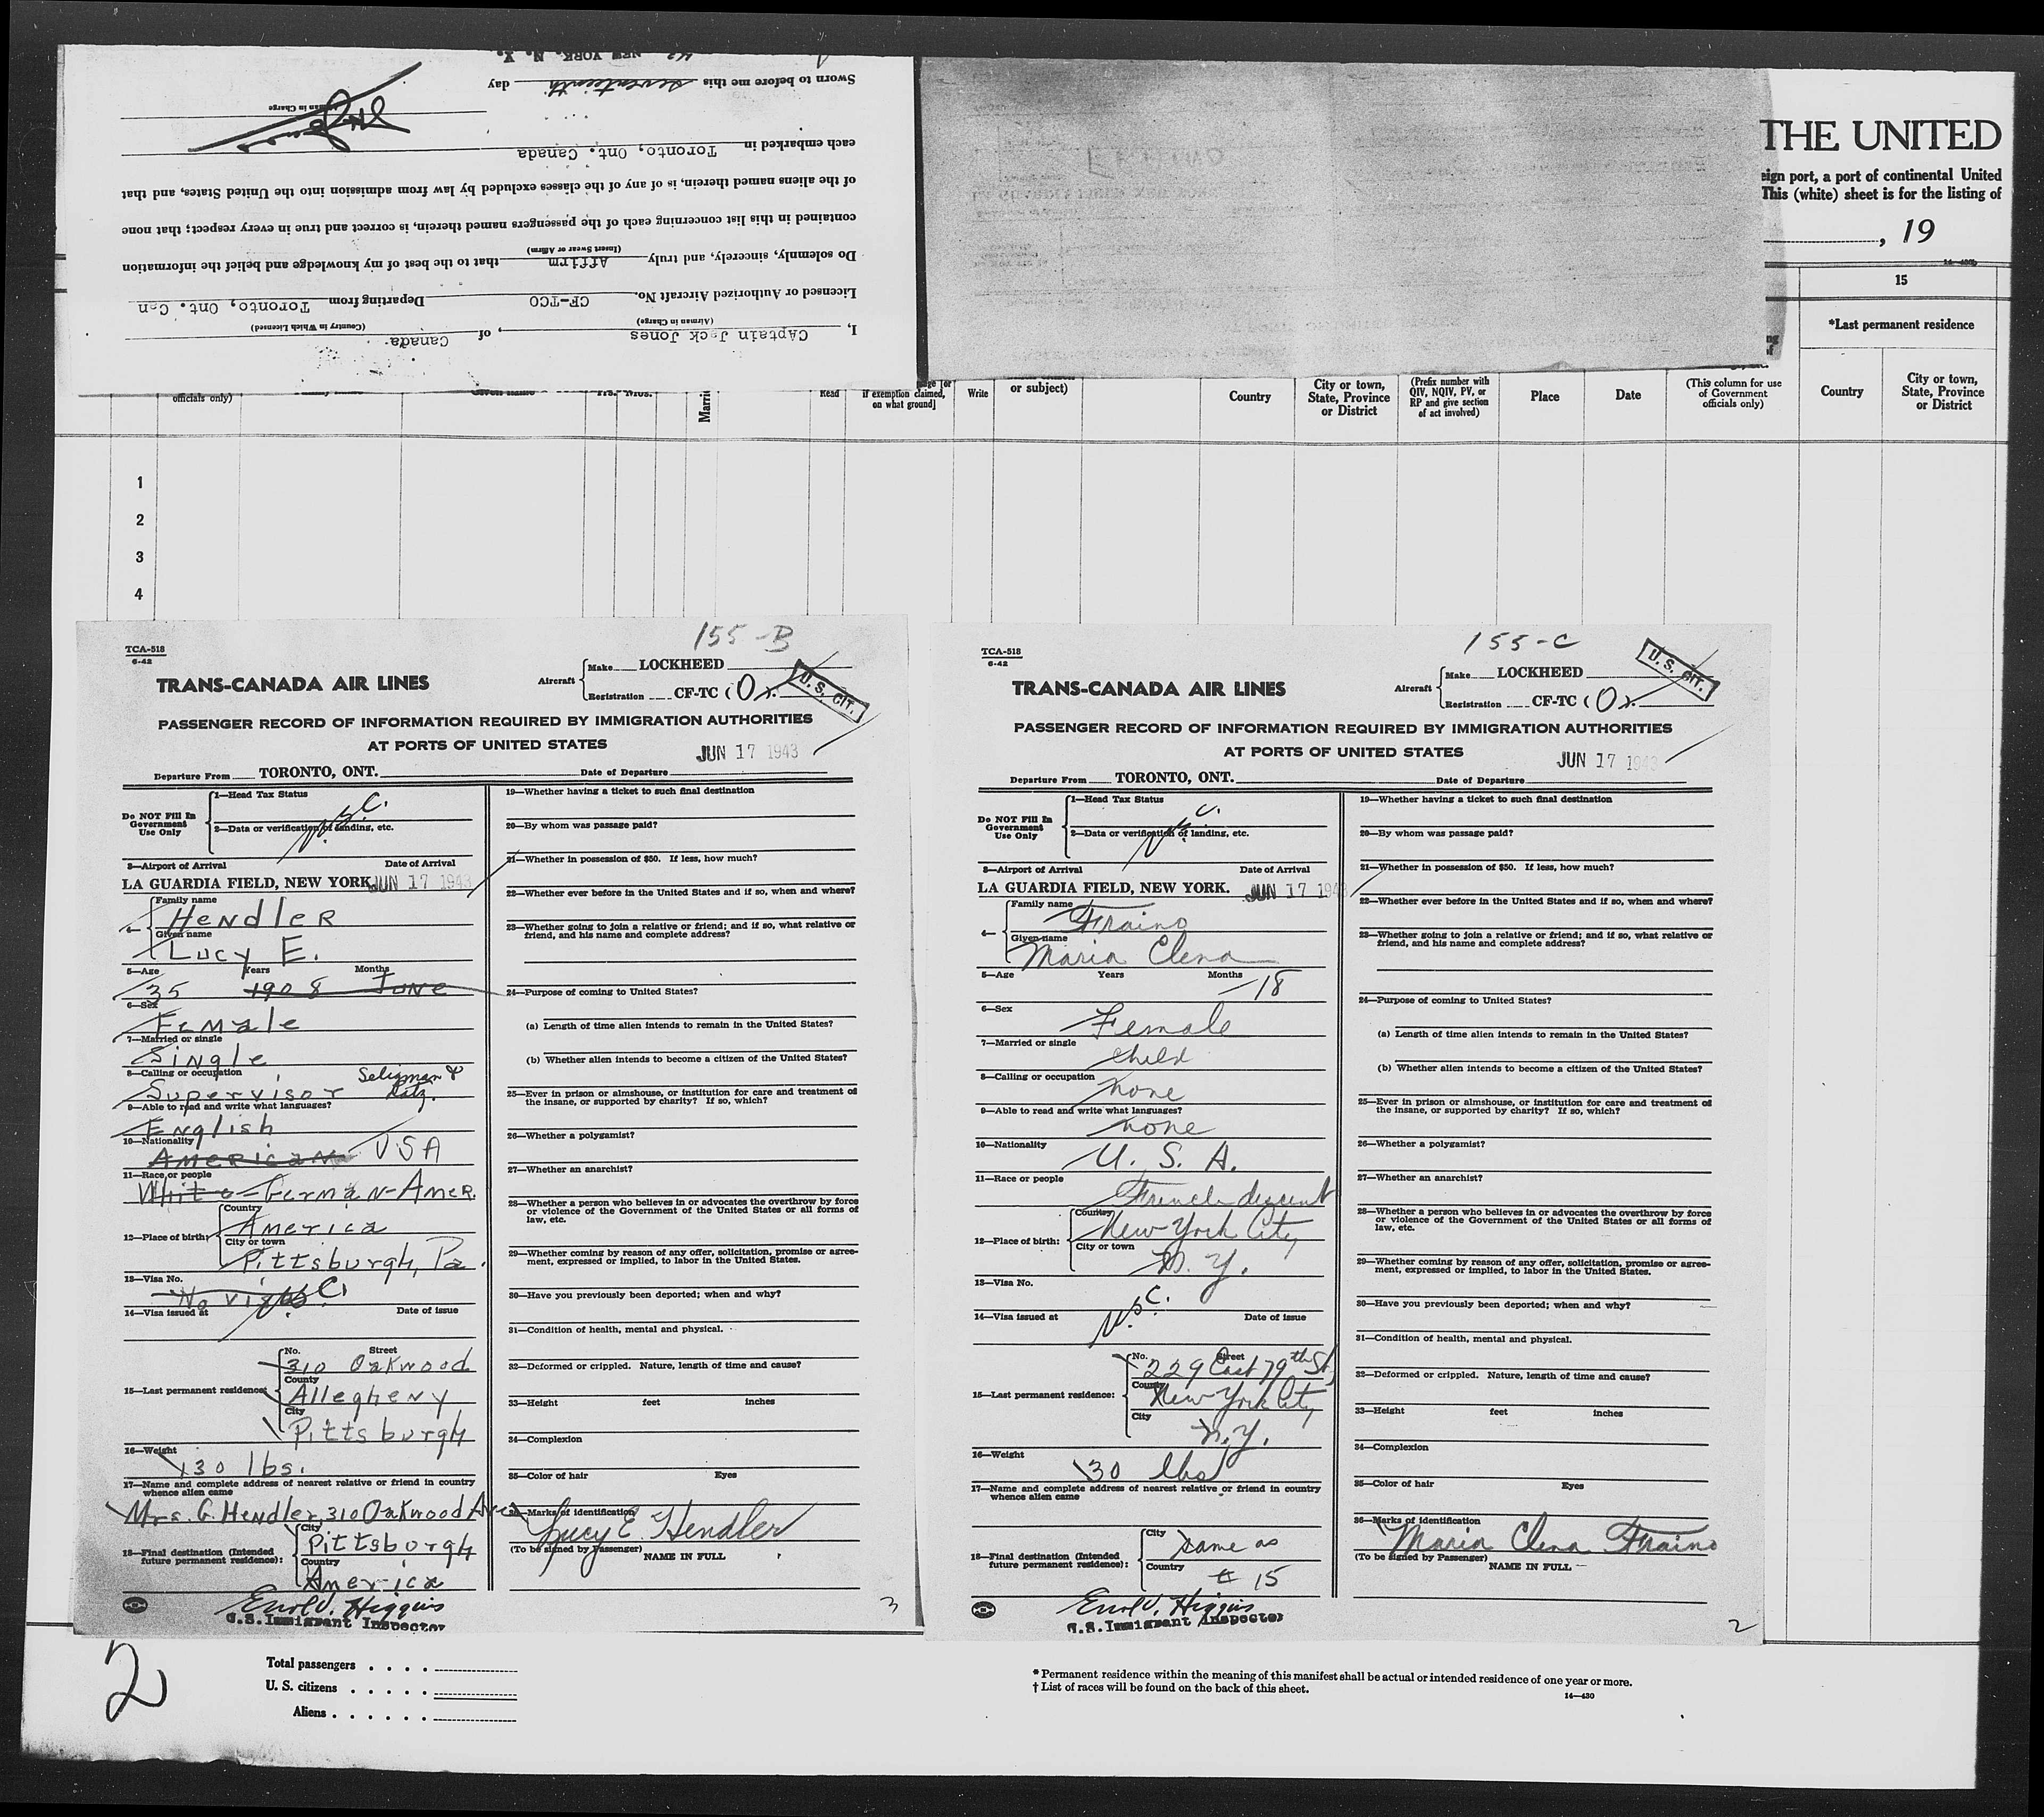 I, CAptain Jack Jones, of Canada.
(Airman in Charge) (Country in Which Licensed)
Licensed or Authorized Aircraft No. CF-TCO Departing from Toronto, Ont. Can
Do solemnly, sincerely, and truly Affirm that to the best of my knowledge and belief the information
(Insert Swear or Affirm)
contained in this list concerning each of the passengers named therein, is correct and true in every respect; that none
of the aliens named therein, is of any of the classes excluded by law from admission into the United States, and that
each embarked in Toronto, Ont. Canada
Airman in Charge
Sworn to before me this seventeenth day
NEW YORK, N. Y.
THE UNITED
eign port, a port of continental United
This (white) sheet is for the listing of
, 19
15
*Last permanent residence
officials only)
Read
if exemption claimed, on what ground]
Write
or subject)
Country
City or town, State, Province or District
(Prefix number with QIV, NQIV, PV, or RP and give section of act involved)
Place
Date
(This column for use of Government officials only)
Country
City or town, State, Province or District
1
2
3
4
155-B
TCA-518
6-42
TRANS-CANADA AIR LINES
Aircraft
Make LOCKHEED
Registration CF-TC (O).
U. S. CIT.
PASSENGER RECORD OF INFORMATION REQUIRED BY IMMIGRATION AUTHORITIES
AT PORTS OF UNITED STATES
JUN 17 1943
Departure From TORONTO, ONT. Date of Departure
Do NOT Fill In Government Use Only
1—Head Tax Status
2—Data or verification of landing, etc.
3—Airport of Arrival Date of Arrival
LA GUARDIA FIELD, NEW YORK. JUN 17 1943
4—
Family name
Hendler
Given name
Lucy E.
5—Age Years Months
35 1908 June
6—Sex
Female
7—Married or single
Single
8—Calling or occupation
Supervisor Seligman &
9—Able to read and write what languages?
English
10—Nationality
American USA
11—Race or people
White German-Amer.
12—Place of birth:
Country
America
City or town
Pittsburgh, Pa.
13—Visa No.
No visa
14—Visa issued at Date of issue
15—Last permanent residence:
No. Street
310 Oakwood
County
Allegheny
City
Pittsburgh
16—Weight
130 lbs.
17—Name and complete address of nearest relative or friend in country whence alien came
Mrs. G. Hendler, 310 Oakwood Ave
18—Final destination (Intended future permanent residence):
City
Pittsburgh
Country
America
Errol V. Higgins
U.S. Immigrant Inspector
19—Whether having a ticket to such final destination
20—By whom was passage paid?
21—Whether in possession of $50. If less, how much?
22—Whether ever before in the United States and if so, when and where?
23—Whether going to join a relative or friend; and if so, what relative or friend, and his name and complete address?
24—Purpose of coming to United States?
(a) Length of time alien intends to remain in the United States?
(b) Whether alien intends to become a citizen of the United States?
25—Ever in prison or almshouse, or institution for care and treatment of the insane, or supported by charity? If so, which?
26—Whether a polygamist?
27—Whether an anarchist?
28—Whether a person who believes in or advocates the overthrow by force or violence of the Government of the United States or all forms of law, etc.
29—Whether coming by reason of any offer, solicitation, promise or agreement, expressed or implied, to labor in the United States.
30—Have you previously been deported; when and why?
31—Condition of health, mental and physical.
32—Deformed or crippled. Nature, length of time and cause?
33—Height feet inches
34—Complexion
35—Color of hair Eyes
36—Marks of identification
Lucy E. Hendler
(To be signed by Passenger) NAME IN FULL
3
155-C
TCA-518
6-42
TRANS-CANADA AIR LINES
Aircraft
Make LOCKHEED
Registration CF-TC (O).
U. S. CIT.
PASSENGER RECORD OF INFORMATION REQUIRED BY IMMIGRATION AUTHORITIES
AT PORTS OF UNITED STATES
JUN 17 1943
Departure From TORONTO, ONT. Date of Departure
Do NOT Fill In Government Use Only
1—Head Tax Status
2—Data or verification of landing, etc.
3—Airport of Arrival Date of Arrival
LA GUARDIA FIELD, NEW YORK. JUN 17 1943
4—
Family name
Fraino
Given name
Maria Elena
5—Age Years Months
18
6—Sex
Female
7—Married or single
child
8—Calling or occupation
none
9—Able to read and write what languages?
none
10—Nationality
U. S. A.
11—Race or people
French descent
12—Place of birth:
Country
New York City
City or town
N. Y.
13—Visa No.
14—Visa issued at Date of issue
15—Last permanent residence:
No. Street
229 East 79th St,
County
New York City
City
N.Y.
16—Weight
30 lbs
17—Name and complete address of nearest relative or friend in country whence alien came
18—Final destination (Intended future permanent residence):
City
same as
Country
# 15
Errol V. Higgins
U.S. Immigrant Inspector
19—Whether having a ticket to such final destination
20—By whom was passage paid?
21—Whether in possession of $50. If less, how much?
22—Whether ever before in the United States and if so, when and where?
23—Whether going to join a relative or friend; and if so, what relative or friend, and his name and complete address?
24—Purpose of coming to United States?
(a) Length of time alien intends to remain in the United States?
(b) Whether alien intends to become a citizen of the United States?
25—Ever in prison or almshouse, or institution for care and treatment of the insane, or supported by charity? If so, which?
26—Whether a polygamist?
27—Whether an anarchist?
28—Whether a person who believes in or advocates the overthrow by force or violence of the Government of the United States or all forms of law, etc.
29—Whether coming by reason of any offer, solicitation, promise or agreement, expressed or implied, to labor in the United States.
30—Have you previously been deported; when and why?
31—Condition of health, mental and physical.
32—Deformed or crippled. Nature, length of time and cause?
33—Height feet inches
34—Complexion
35—Color of hair Eyes
36—Marks of identification
Maria Elena Fraino
(To be signed by Passenger) NAME IN FULL
2
2
Total passengers
U. S. citizens
Aliens
* Permanent residence within the meaning of this manifest shall be actual or intended residence of one year or more.
† List of races will be found on the back of this sheet.
14—430